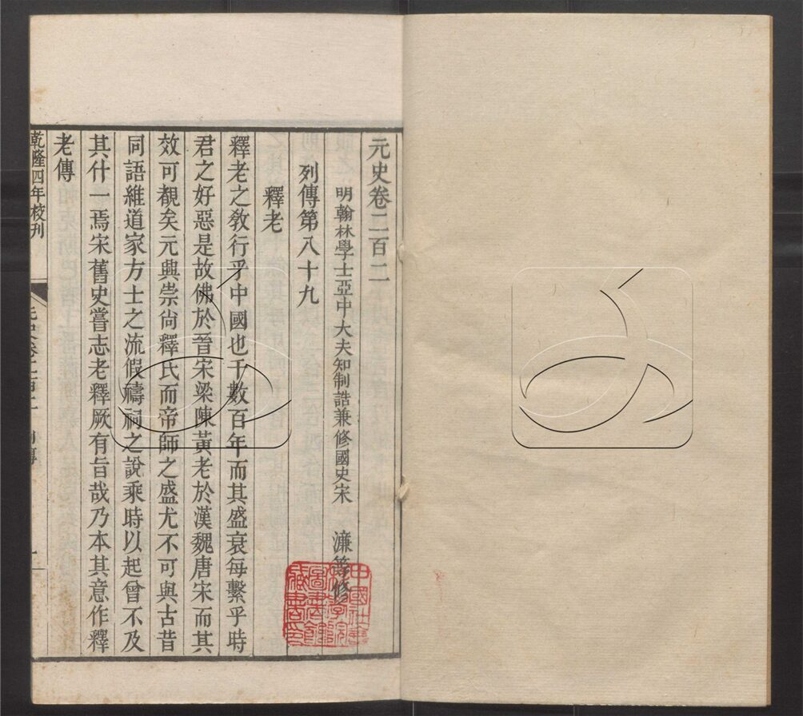 元史卷二百二
明翰林學士亞中大夫知制誥兼修國史宋　濂等修
列傳第八十九
釋老
釋老之敎行乎中國也千數百年而其盛衰每繫乎時
君之好惡是故佛於晉宋梁陳黃老於漢魏唐宋而其
效可覩矣元興崇尚釋氏而帝師之盛尤不可與古昔
同語維道家方士之流假禱祠之說乘時以起曾不及
其什一焉宋舊史嘗志老釋厥有旨哉乃本其意作釋
老傳
乾隆四年校刊